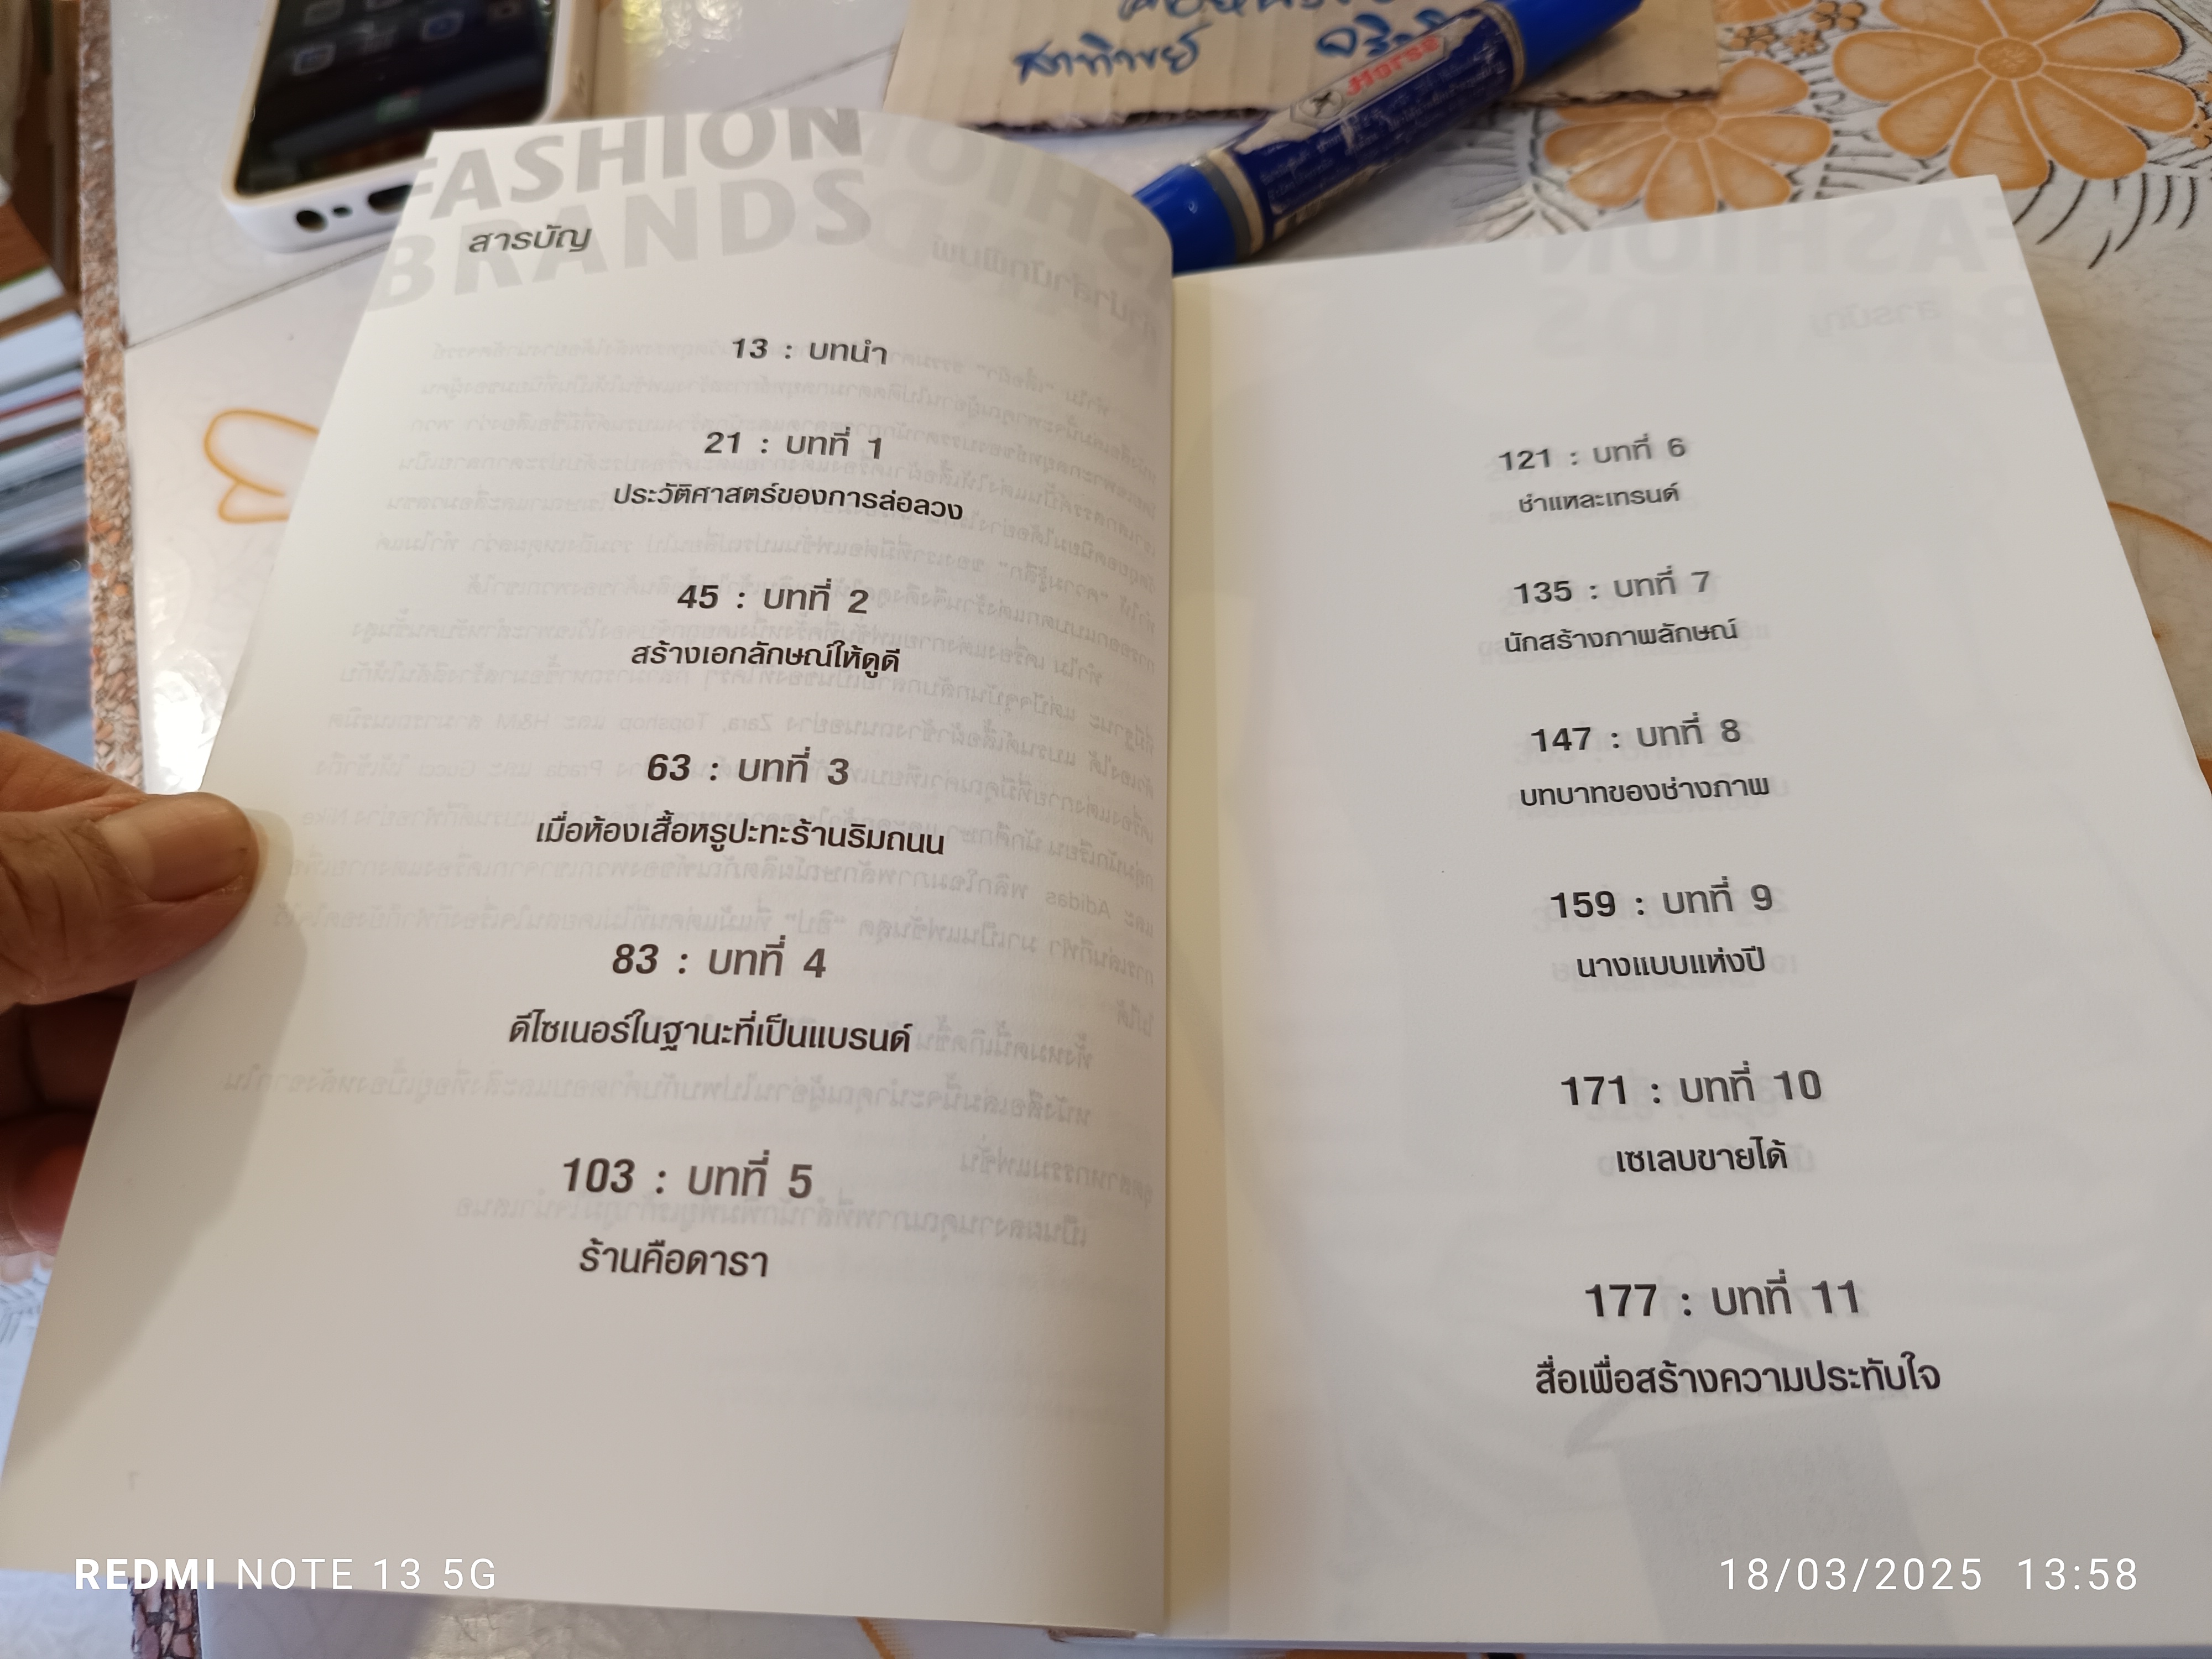 สาทิวย์
Horse
FASHION
BRANDS
สารบัญ
13 : บทนำ
21 : บทที่ 1
ประวัติศาสตร์ของการล่อลวง
45 : บทที่ 2
สร้างเอกลักษณ์ให้ดูดี
63 : บทที่ 3
เมื่อห้องเสื้อหรูปะทะร้านริมถนน
83 : บทที่ 4
ดีไซเนอร์ในฐานะที่เป็นแบรนด์
103 : บทที่ 5
ร้านคือดารา
121 : บทที่ 6
ชำแหละเทรนด์
135 : บทที่ 7
นักสร้างภาพลักษณ์
147 : บทที่ 8
บทบาทของช่างภาพ
159 : บทที่ 9
นางแบบแห่งปี
171 : บทที่ 10
เซเลบขายได้
177 : บทที่ 11
สื่อเพื่อสร้างความประทับใจ
REDMI NOTE 13 5G
18/03/2025 13:58